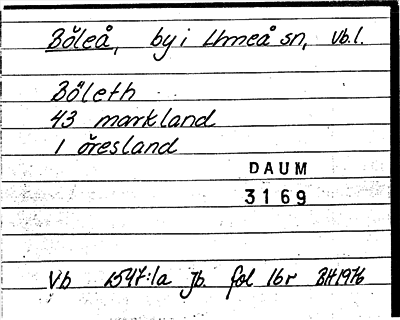 Böleå, by i Umeå sn, Vb.l.
Böleth
43 markland
1 öresland
DAUM
3169
Vb 1547:1a jb. fol 16r BH1976